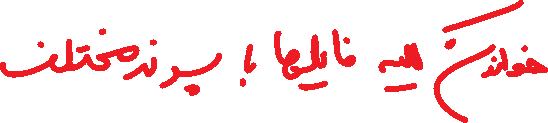 خواندن کلیه فایلها با پسوند مختلف